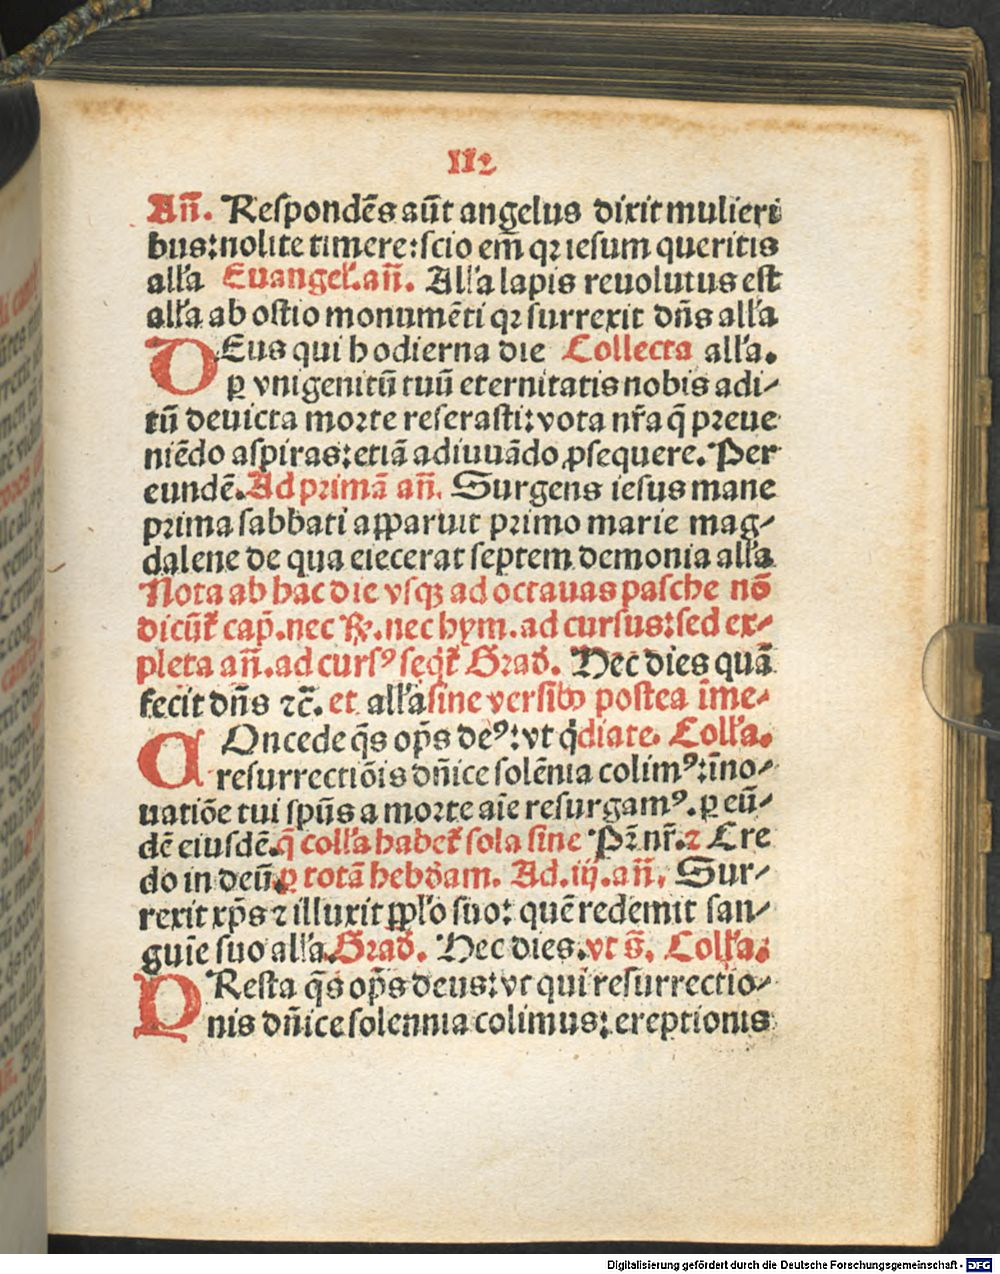 112
Añ. Respondēs aūt angelus dixit mulieri
bus: nolite timere: scio em̄ qꝛ iesum queritis
alľa Euangeľ. añ. Alľa lapis reuolutus est
alľa ab ostio monumēti qꝛ surrexit dñs alľa
DEus qui hodierna die Collecta alľa.
ꝑ vnigenitū tuū eternitatis nobis adi⸗
tū deuicta morte reserasti: vota nr̄a q̄ preue
niēdo aspiras: etiā adiuuādo ꝓsequere. Per
eundē. Ad primā añ. Surgens iesus mane
prima sabbati apparuit primo marie mag⸗
dalene de qua eiecerat septem demonia alľa
Nota ab hac die vsqꝫ ad octauas pasche nō
dicūt᷑ cap̄. nec ℟. nec hym. ad cursus: sed ex⸗
pleta añ. ad cursꝰ seq̄t᷑ Grad̄. Hec dies quā
fecit dñs ⁊c̄. et alľa sine versibꝫ postea īme⸗
COncede q̄s op̄s deꝰ: vt q̇ diate. Colľa.
resurrectiōis dñice solēnia colimꝰ: īno⸗
uatiōe tui sp̄us a morte aīe resurgamꝰ. ꝑ eū⸗
dē eiusdē. q̄ colľa habet᷑ sola sine Pr̄ nr̄. ⁊ Cre
do in deū. ꝑ totā hebd̄am. Ad. iij. añ. Sur⸗
rexit xp̄s ⁊ illuxit ppľo suo: quē redemit san⸗
guīe suo alľa. Grad̄. Hec dies. vt s̄. Colľa:
PResta q̄s op̄s deus: vt qui resurrectio⸗
nis dñice solennia colimus: ereptionis
Digitalisierung gefördert durch die Deutsche Forschungsgemeinschaft - DFG